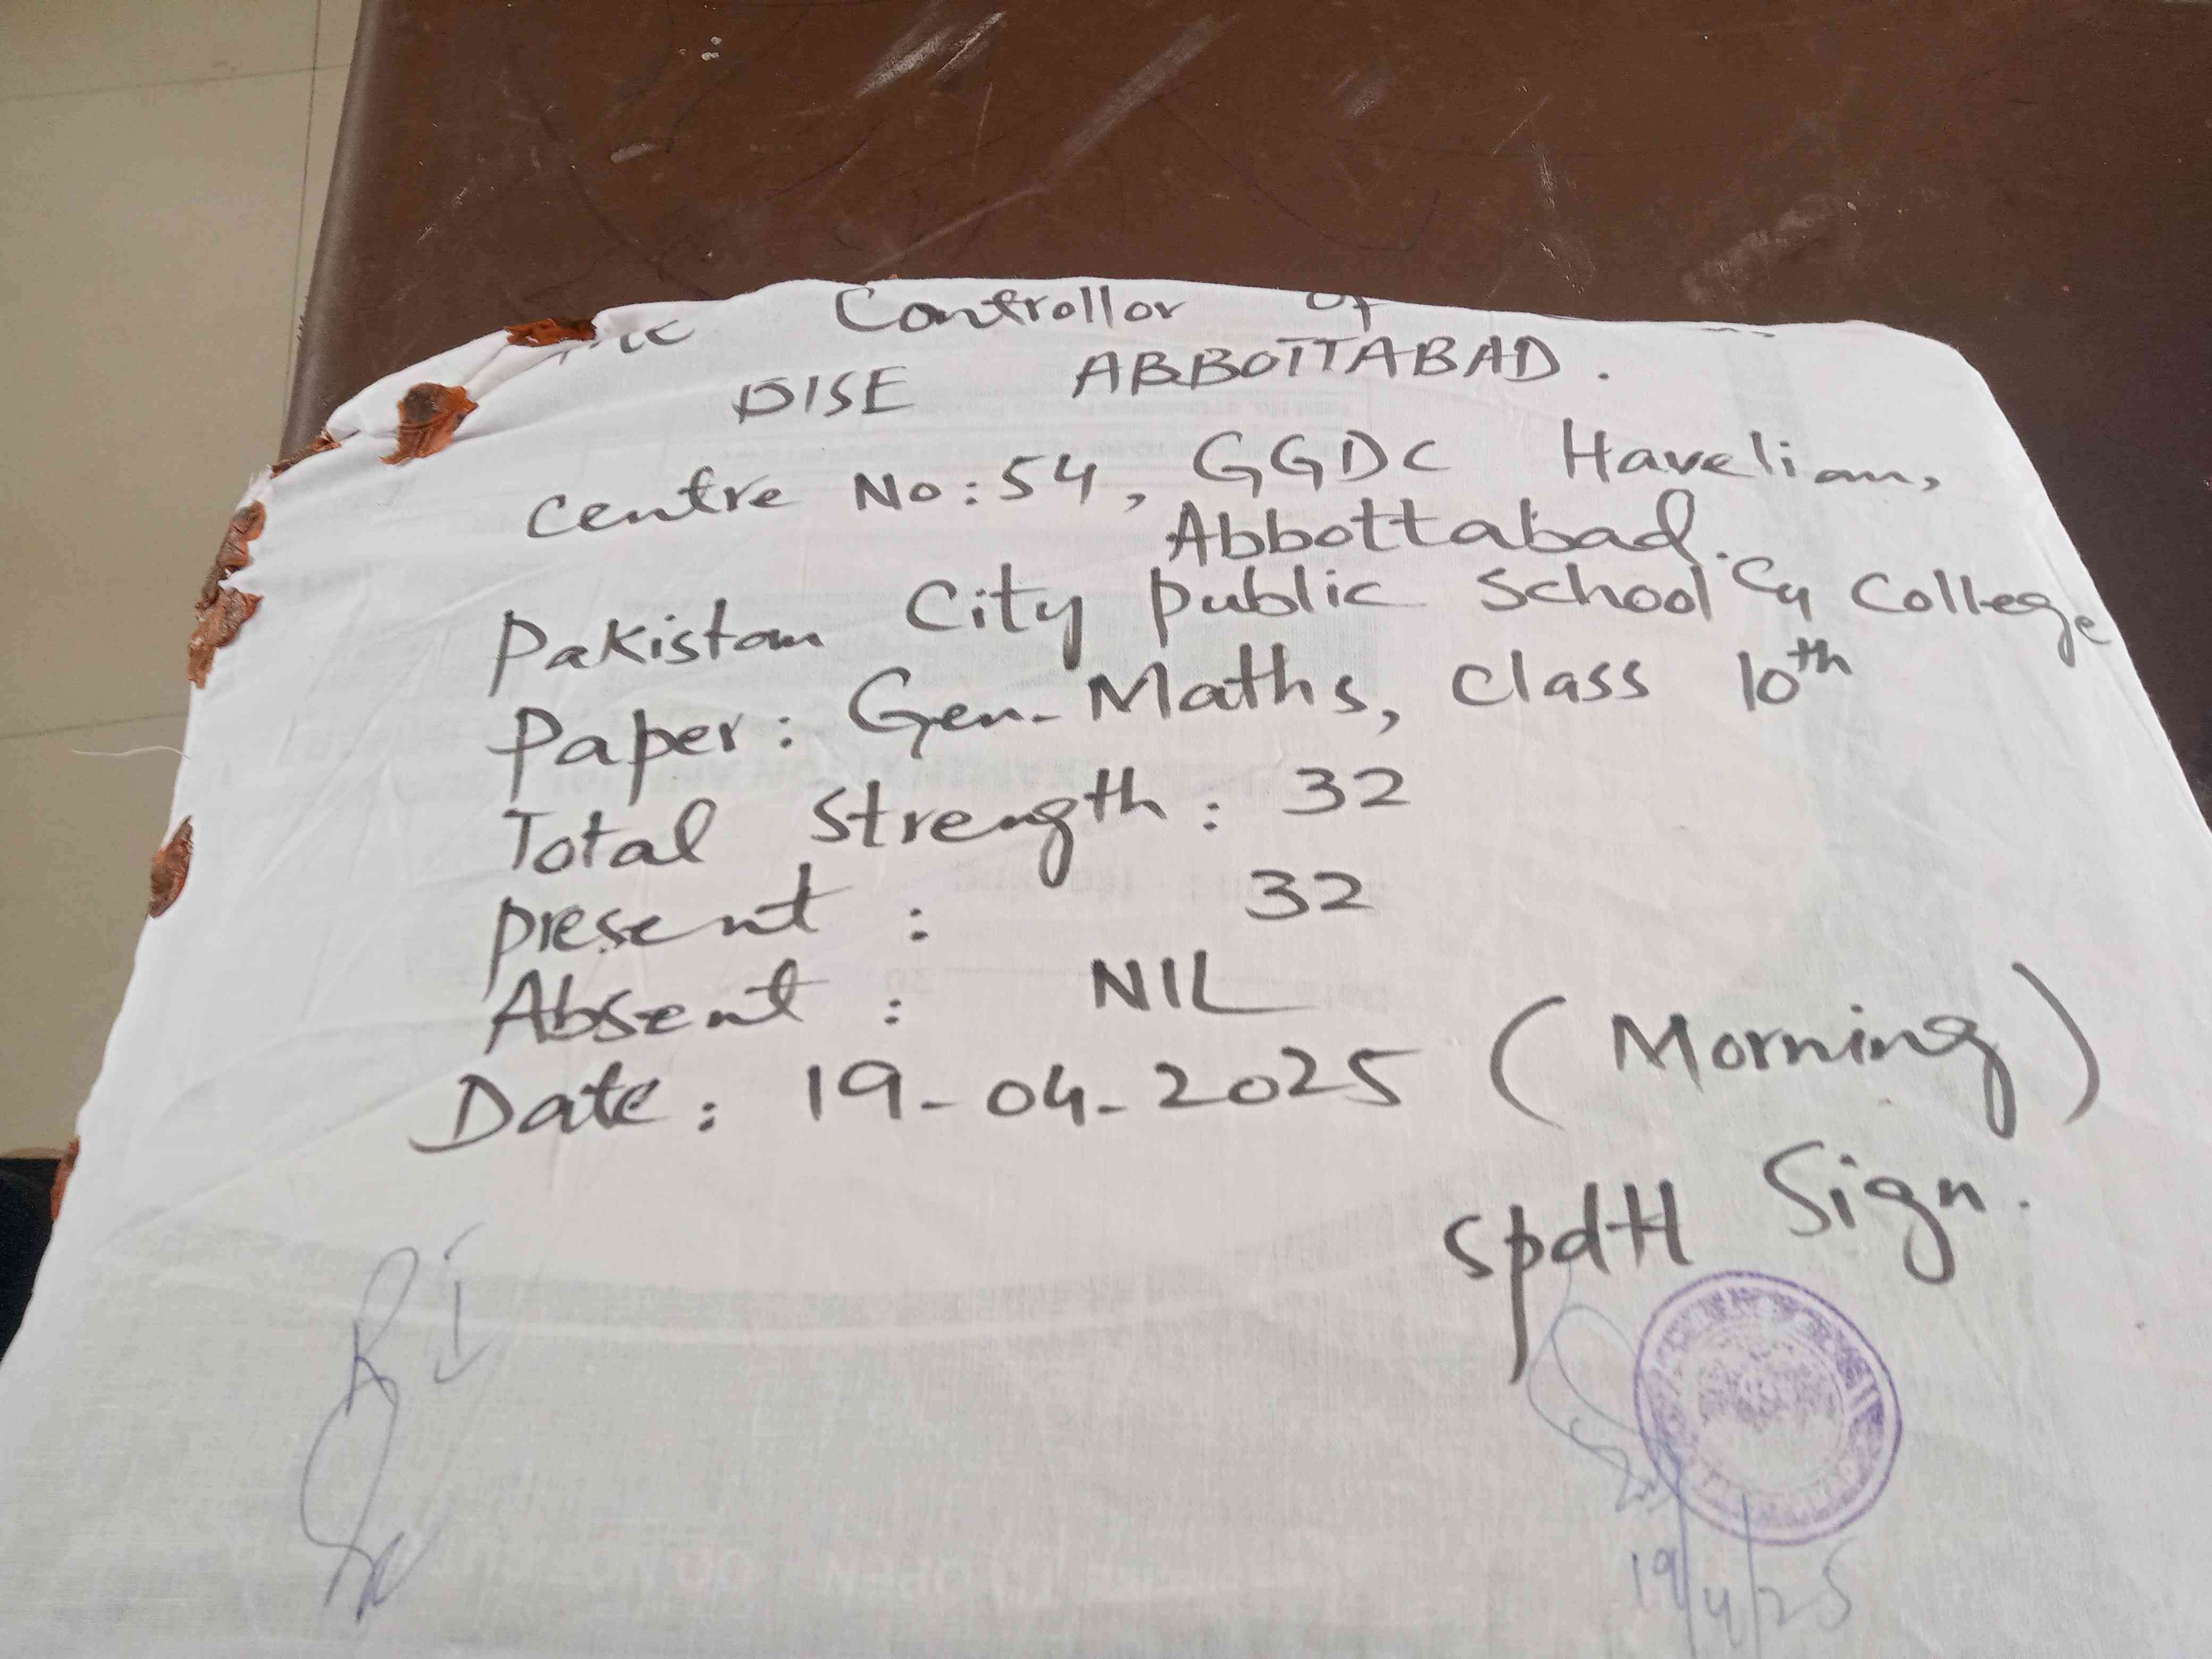 The Controllor of
BISE ABBOTTABAD.
Centre No: 54, GGDC Havelian,
Abbottabad.
Pakistan City Public School & College
Paper: Gen-Maths, Class 10th
Total Strength: 32
Present : 32
Absent : NIL
Date: 19-04-2025 (Morning)
Spdtt Sign.
19/4/25